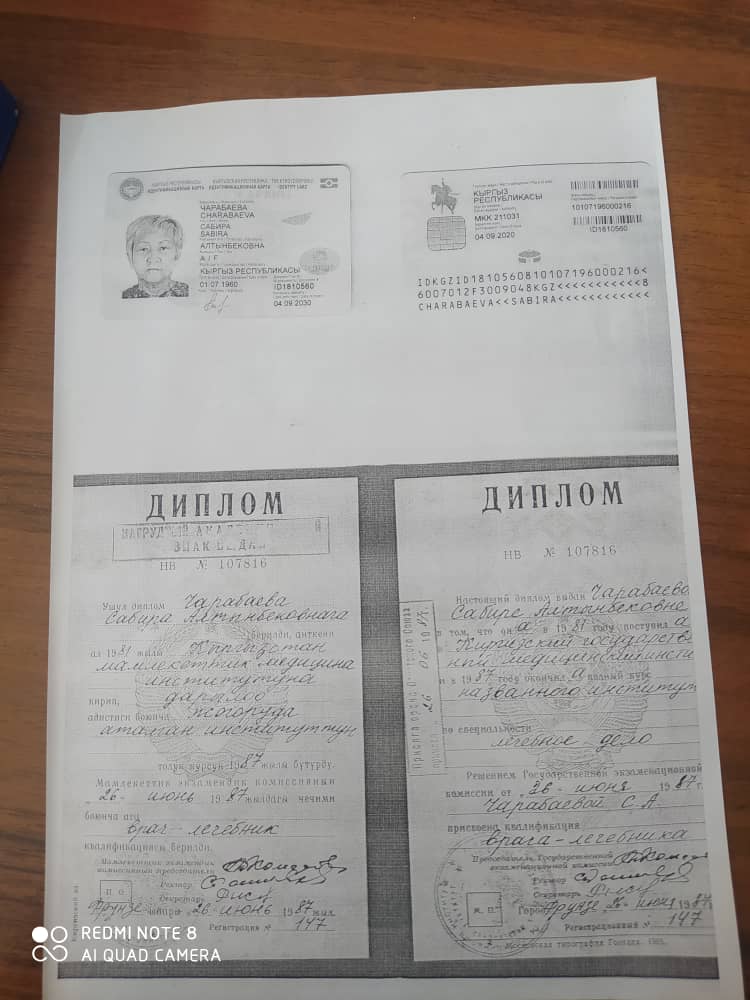 КЫРГЫЗ РЕСПУБЛИКАСЫ КЫРГЫЗСКАЯ РЕСПУБЛИКА THE KYRGYZ REPUBLIC
ИДЕНТИФИКАЦИЯЛЫК КАРТА ИДЕНТИФИКАЦИОННАЯ КАРТА IDENTITY CARD
ЧАРАБАЕВА
CHARABAEVA
САБИРА
SABIRA
АЛТЫНБЕКОВНА
А / F
КЫРГЫЗ РЕСПУБЛИКАСЫ
01.07.1960
ID1810560
04.09.2030
КЫРГЫЗ
РЕСПУБЛИКАСЫ
МКК 211031
04.09.2020
10107196000216
ID1810560
IDKGZID1810560810107196000216<
6007012F3009048KGZ<<<<<<<<<<<8
CHARABAEVA<<SABIRA<<<<<<<<<<<<
ДИПЛОМ
НАГРУДНЫЙ
ЗНАК ВЫДАН
НВ № 107816
Ушул диплом Чарабаева
Сабира Алтынбековнага
берилди, анткени
ал 1981 жылы Кыргызстан
мамлекеттик медицина
институтуна
кирип, дарылоо
адистиги боюнча жогоруда
аталган институттун
толук курсун 1987 жылы бүтүрдү.
Мамлекеттик экзамендик комиссиянын
„26" июнь 1987 жылдагы чечими
боюнча ага
врач-лечебник
квалификациясы берилди.
Мамлекеттик экзамендик
комиссиянын председатели
Ректор
Секретарь
М. О.
Фрунзе шаары 26 июнь 1987 жыл.
Регистрация № 147
ДИПЛОМ
НВ № 107816
Настоящий диплом выдан Чарабаево
Сабире Алтынбековне
в том, что она в 1981 году поступила
Киргизский государств
ный медицинский инсти
и в 1987 году окончила полный курс
названного институт
по специальности
лечебное дело
Решением Государственной экзаменационной
комиссии от „26" июня 1987 г.
Чарабаевой С. А.
присвоена квалификация
врача-лечебника
Председатель Государственной
экзаменационной комиссии
Ректор
Секретарь
М. П.
Город Фрунзе, 26 июня 1987
Регистрационный № 147
Московская типография Гознака. 1985.
26 06 1987
REDMI NOTE 8
AI QUAD CAMERA